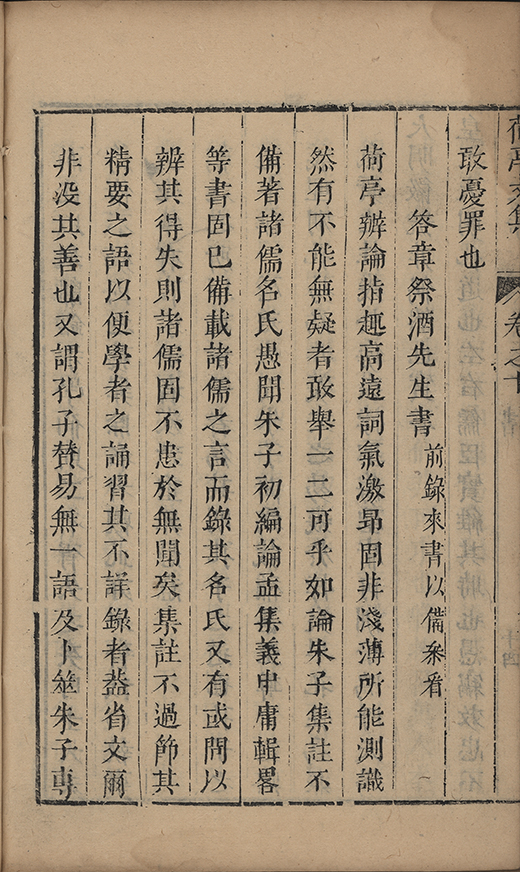 荷亭文集 卷之十
敢憂罪也
答章祭酒先生書 前錄來書以備參看
荷亭辨論指趣高遠詞氣激昂固非淺薄所能測識
然有不能無疑者敢舉一二可乎如論朱子集註不
備著諸儒名氏愚聞朱子初編論孟集義中庸輯畧
等書固已備載諸儒之言而錄其名氏又有或問以
辨其得失則諸儒固不患於無聞矣集註不過節其
精要之語以便學者之誦習其不詳錄者葢省文爾
非没其善也又謂孔子賛易無一語及卜筮朱子専